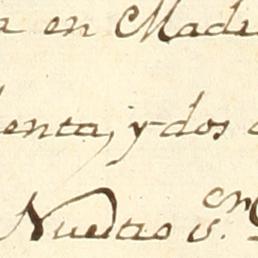 a en Madri
enta, y dos
Nuestro S.or